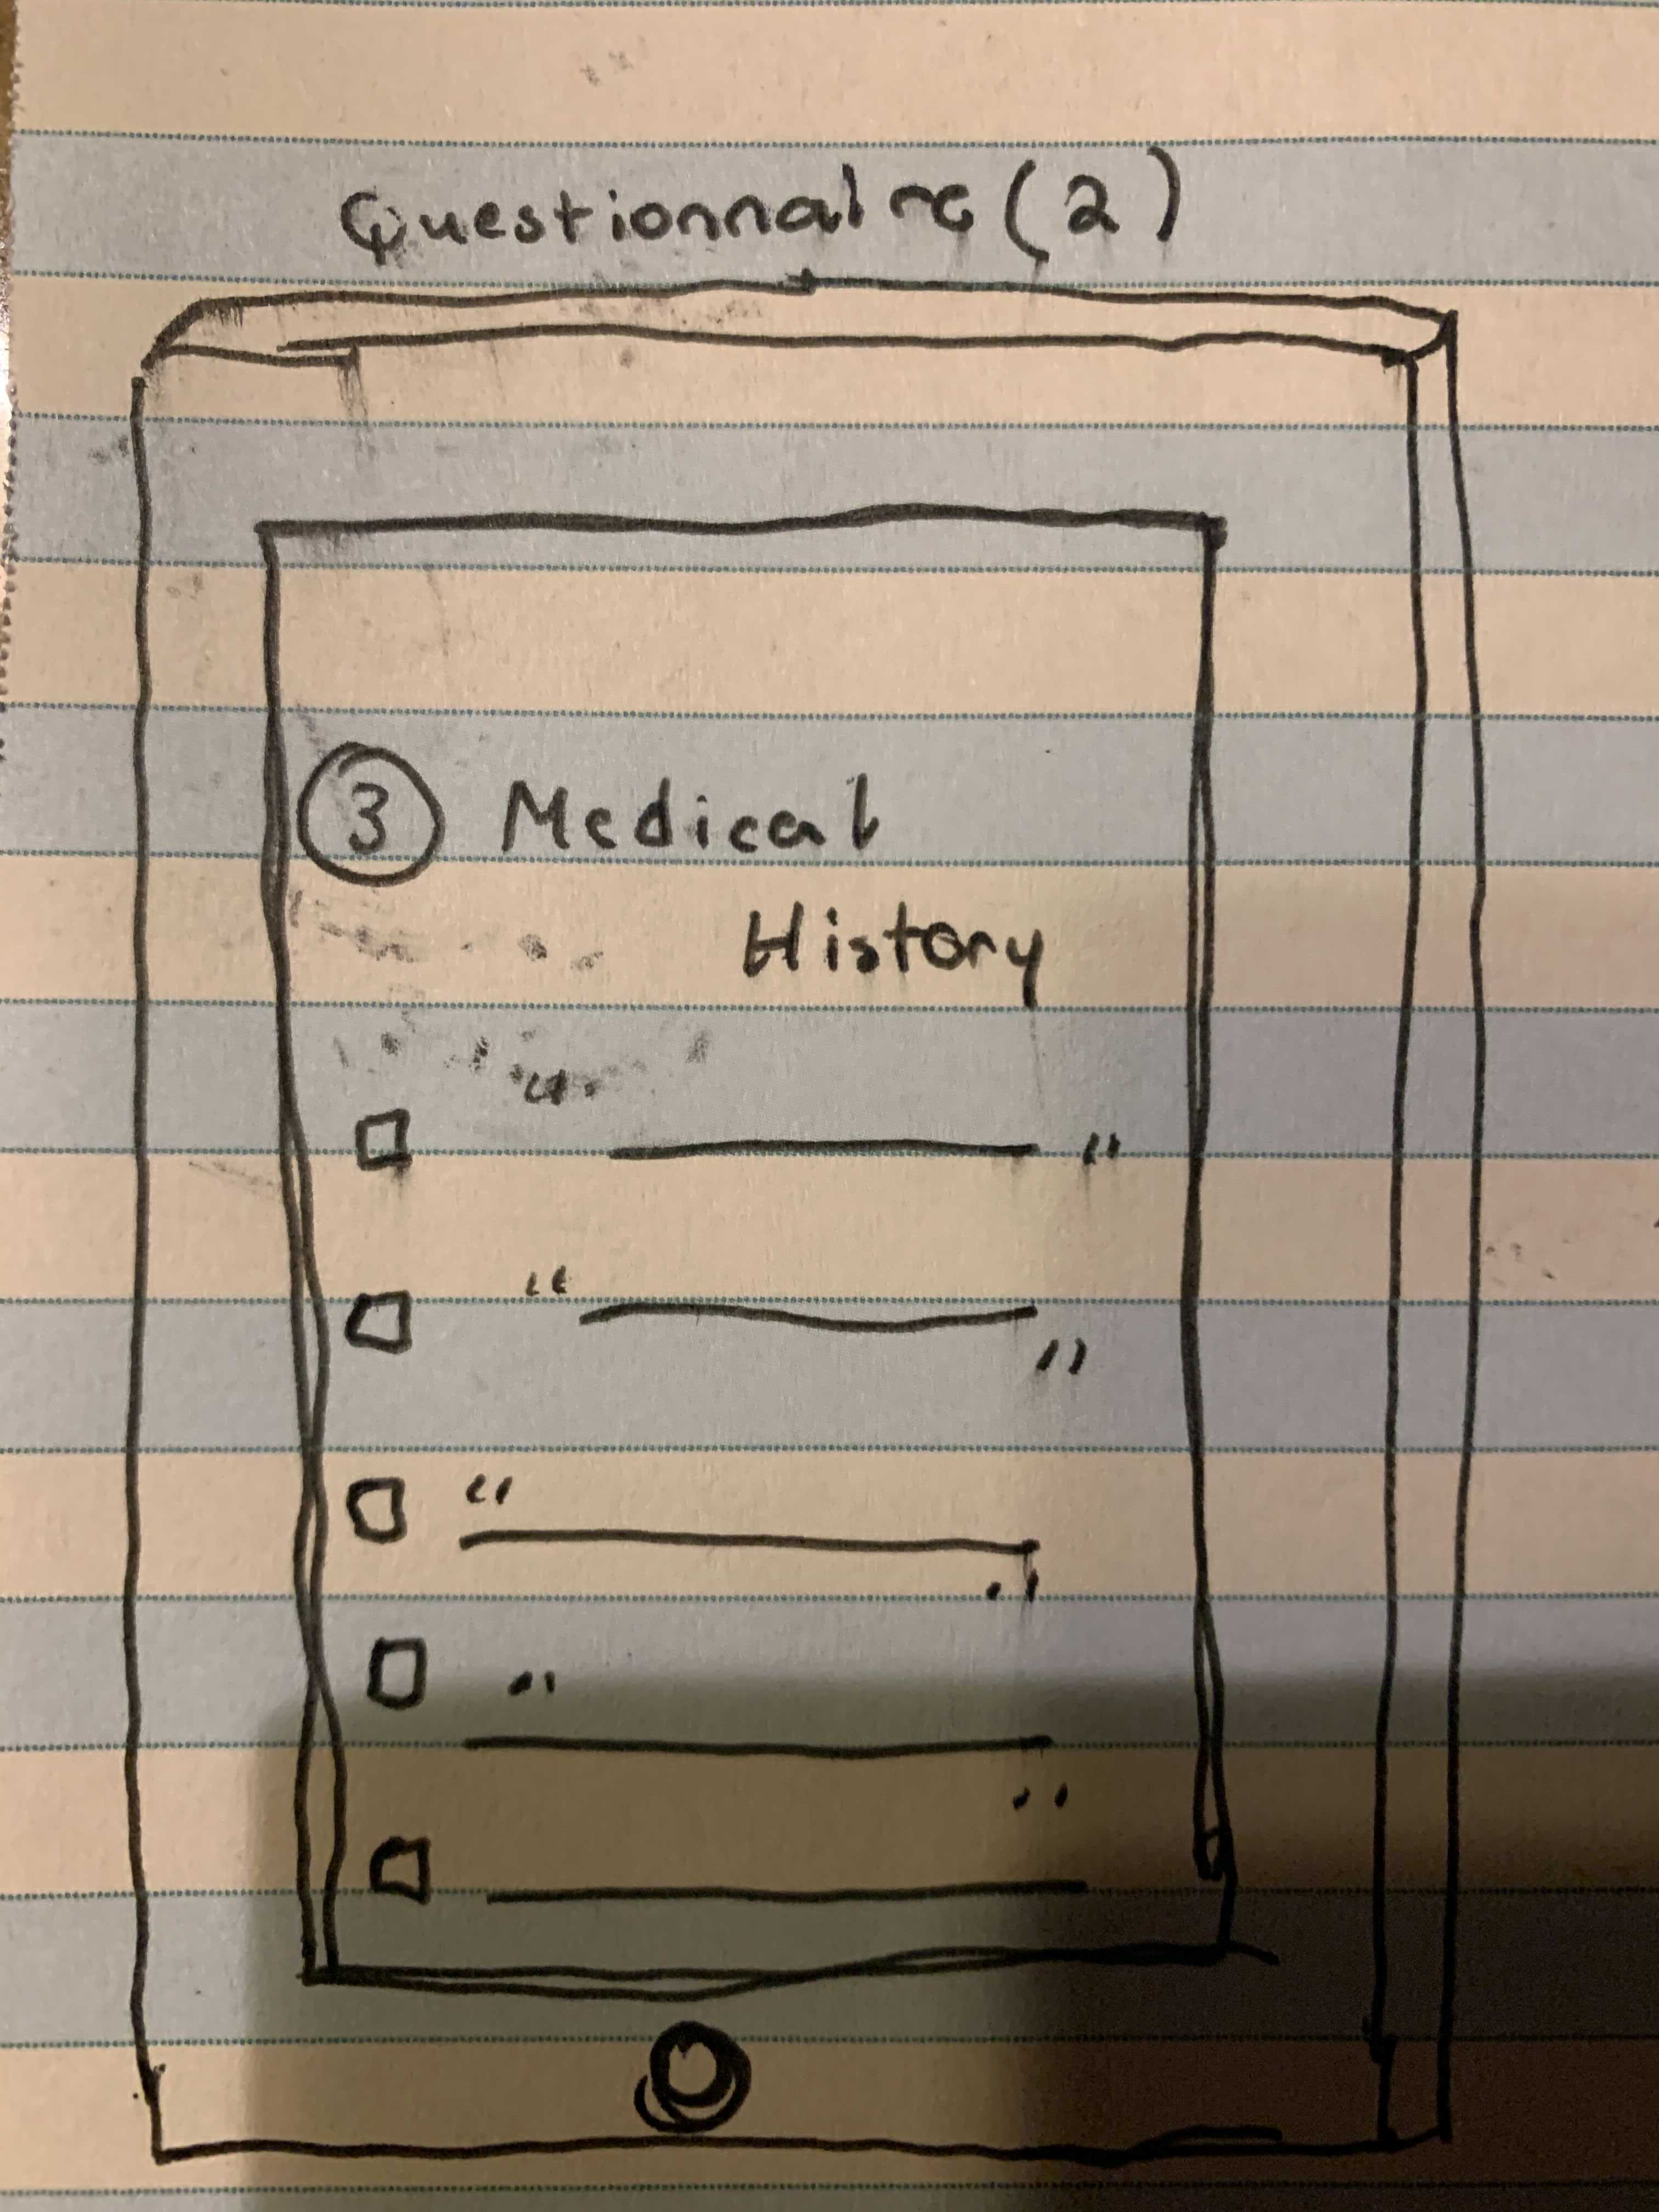 Questionnaire (2)
3 Medical
History
" "
" "
" "
" "